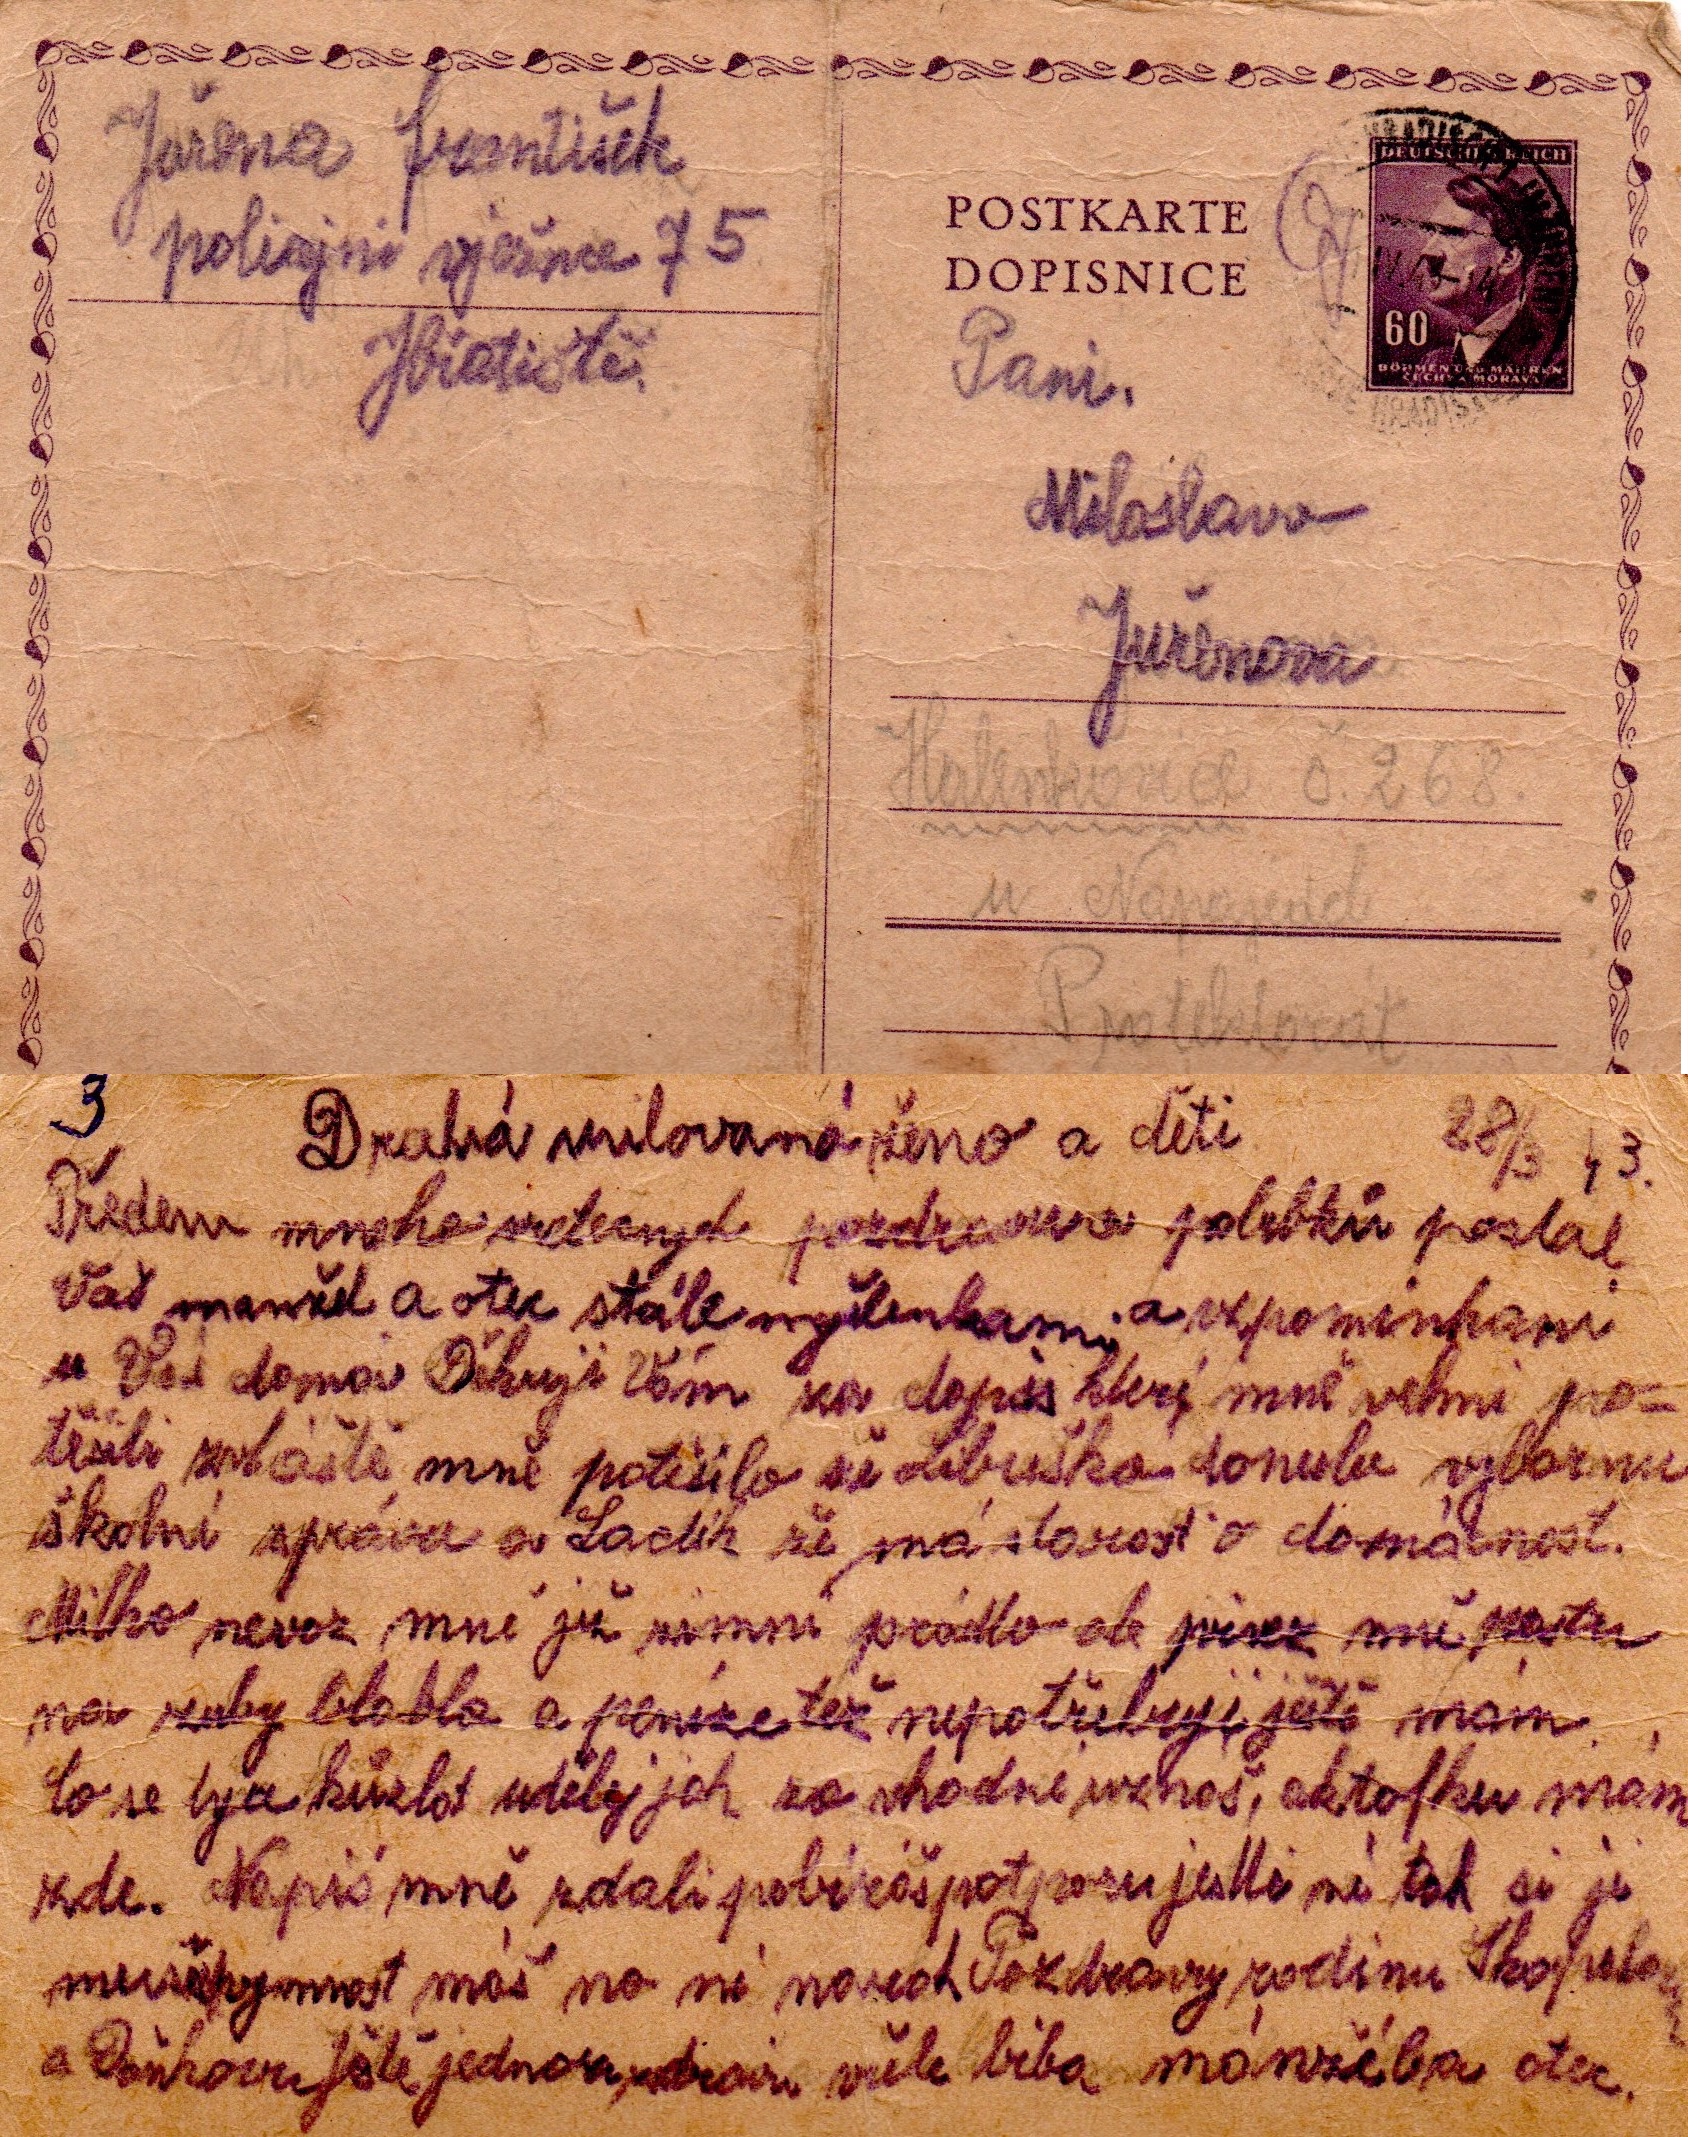 Juřena František
policejní vjěznice 75
Hradiště.
POSTKARTE
DOPISNICE
DEUTSCHES REICH
60
BÖHMEN UND MÄHREN
ČECHY A MORAVA
Paní.
Miloslava
Juřenova
Halenkovice č. 268.
u Napajedel
Protektorat
3
Drahá milovaná ženo a děti
28/3 43.
Předem mnoho srdecnych pozdravu a polibků poslal
Váš manžel a otec stále myšlenkami a vzpominkami
u Vas doma Děkuji Vám za dopis který mně velmi po=
těšil zvláště mně potěšilo že Libuška donula vybornu
školní zpráva a Ladík že má starost o domácnost.
Milko nevoz mně již zimni prádlo ale přivez mně pastu
na zuby blabla a peníze též nepotřebuji ještě mám.
Co se tyce kůzlat udělej jak za vhodné uznáš, aktofku mám
zde. Napiš mně zdali pobíráš potporu jestli né tak si ji
povinnost máš na ni narok Pozdravy rodinu
a Vaňkovu Ještě jednou zdravi vele líba manžel a otec.